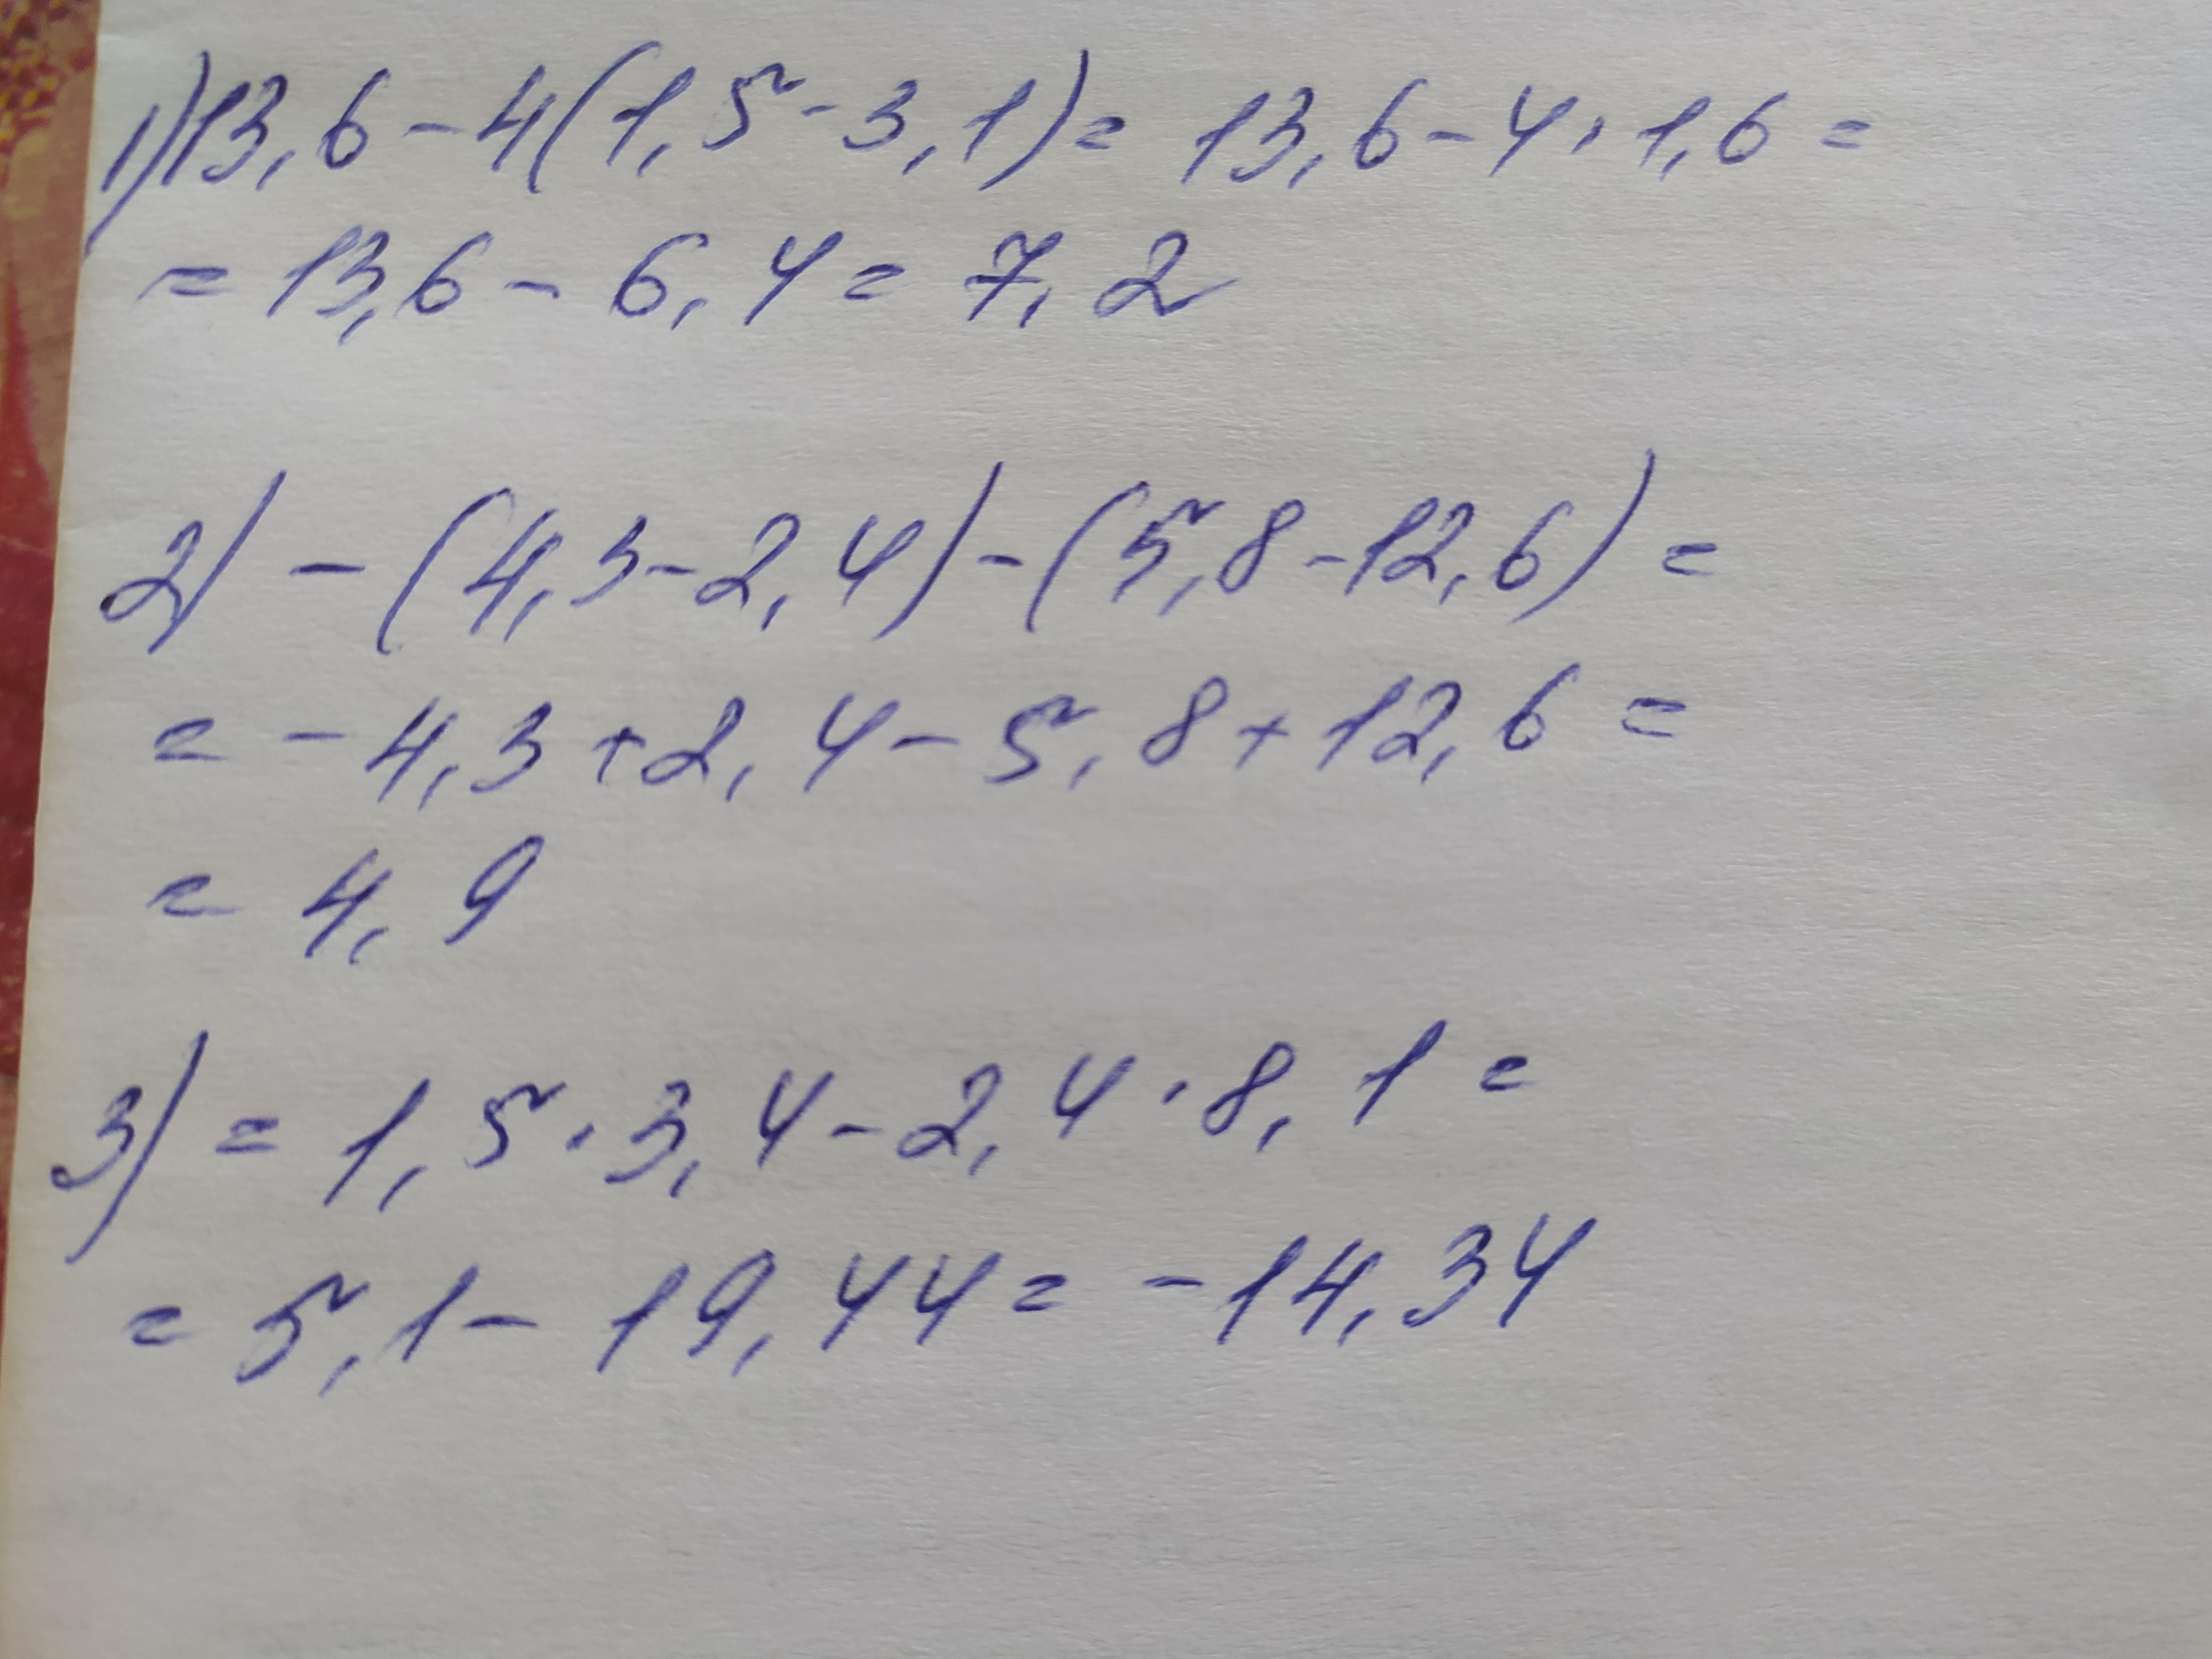 1) 13,6 - 4(1,5 - 3,1) = 13,6 - 4 · 1,6 =
= 13,6 - 6,4 = 7,2
2) - (4,3 - 2,4) - (5,8 - 12,6) =
= - 4,3 + 2,4 - 5,8 + 12,6 =
= 4,9
3) = 1,5 · 3,4 - 2,4 · 8,1 =
= 5,1 - 19,44 = - 14,34